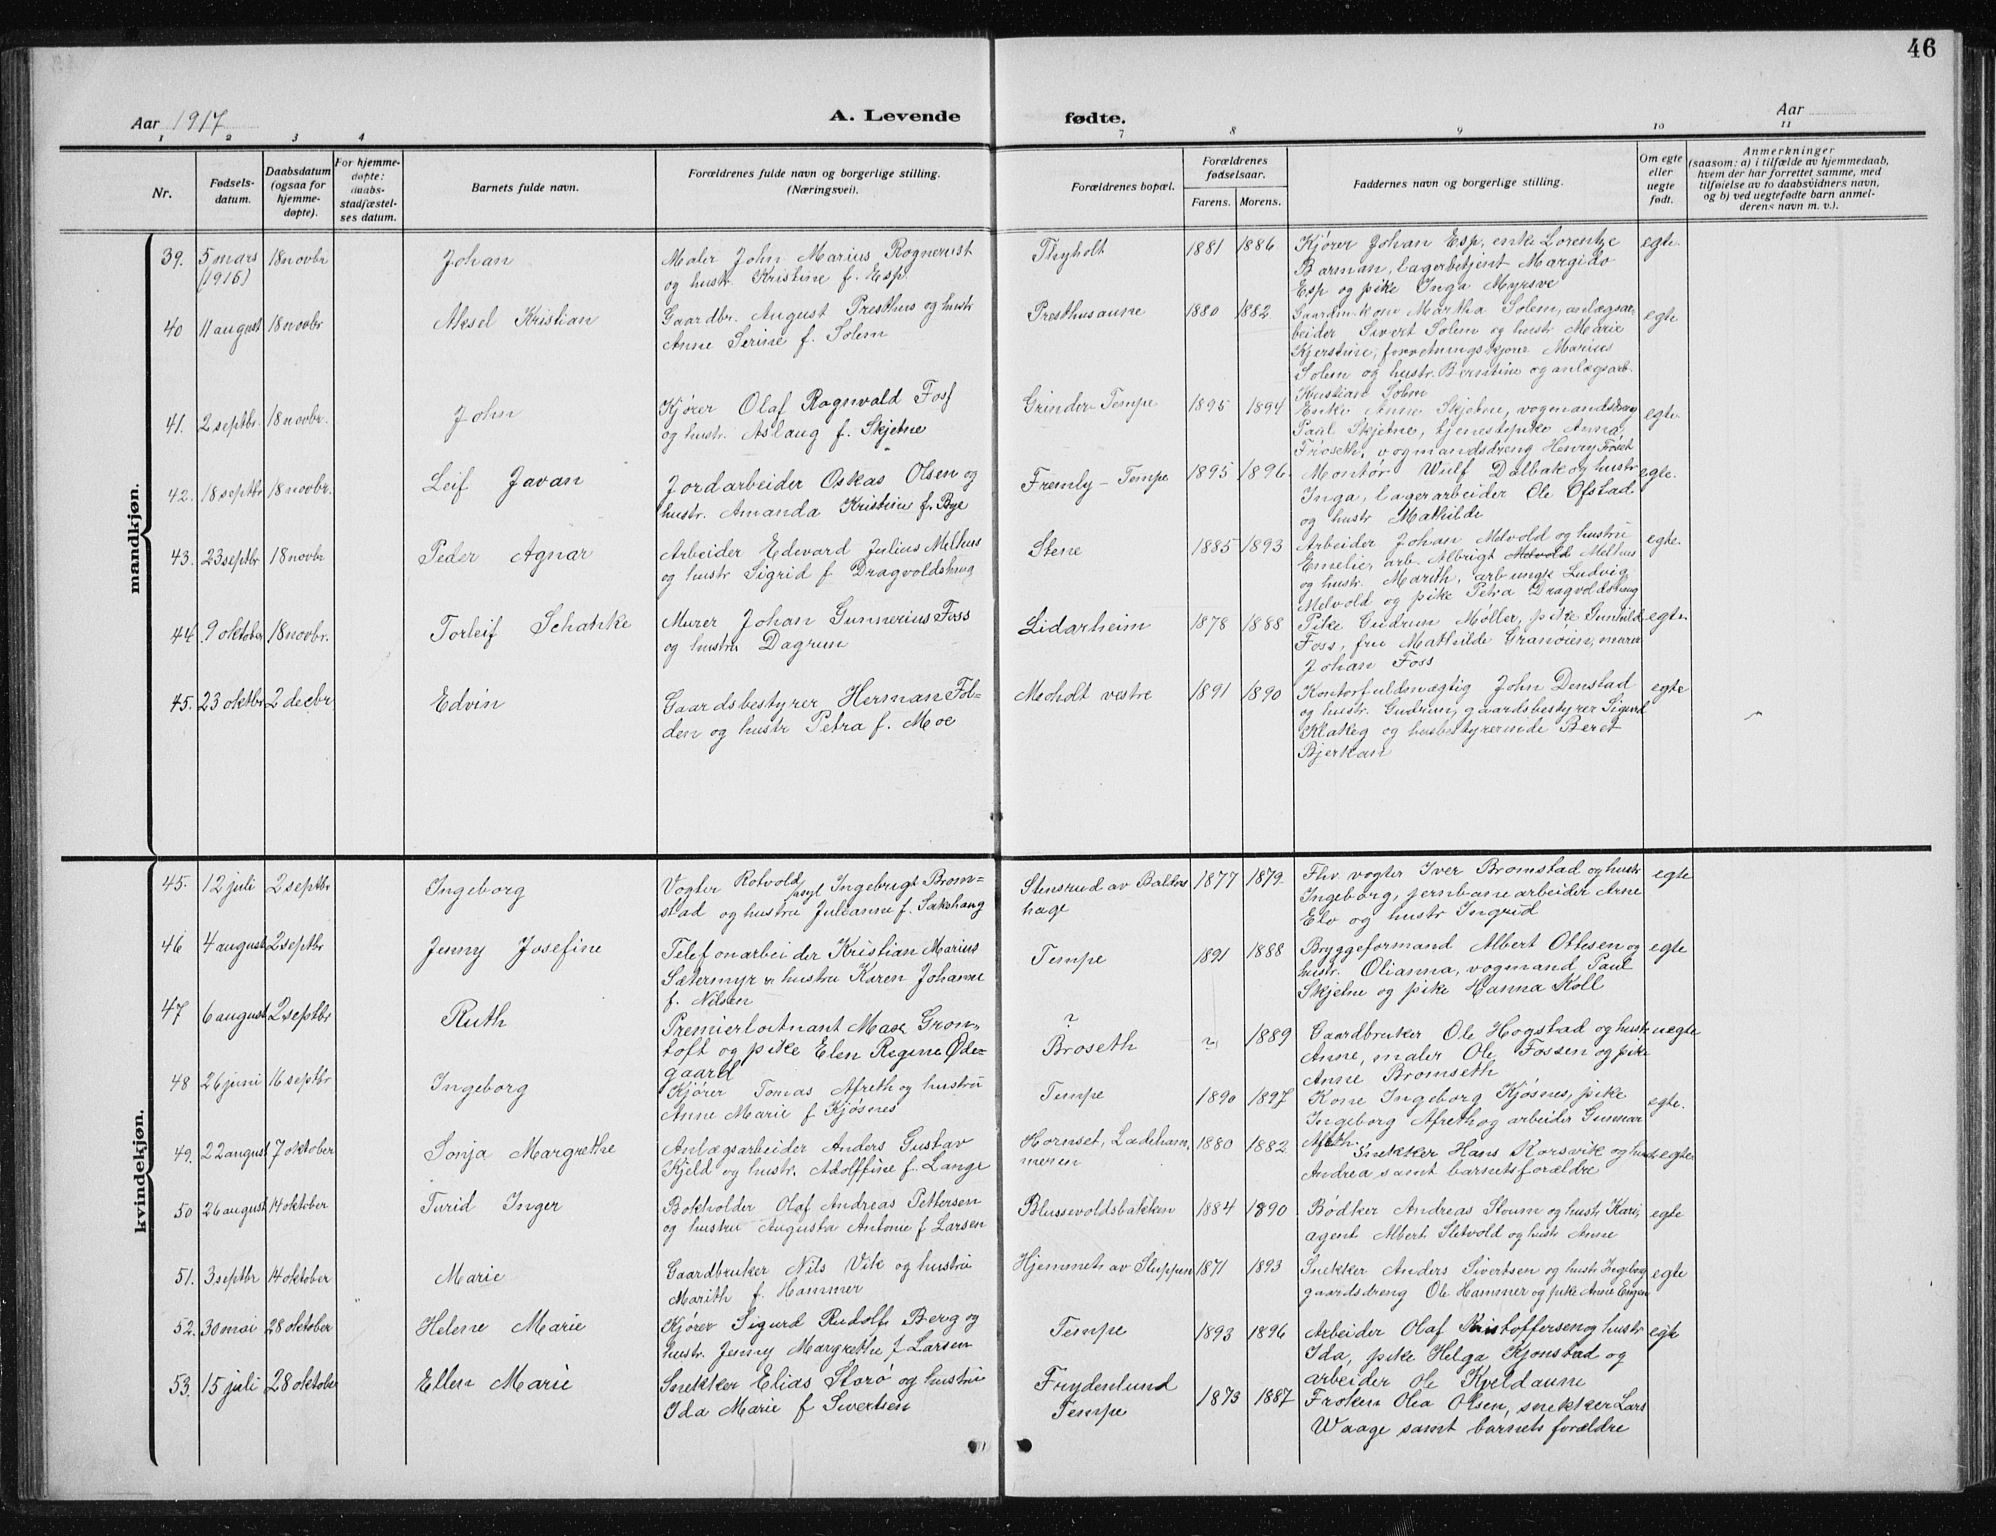 46
Aar 1917
A. Levende fødte.
Aar
1 2 3 4 7 8 9 10 11
Nr.
Fødsels-
datum.
Daabsdatum
(ogsaa for
hjemme-
døpte).
For hjemme-
døpte:
daabs-
stadfæstel-
ses datum.
Barnets fulde navn.
Forældrenes fulde navn og borgerlige stilling.
(Næringsvei).
Forældrenes bopæl.
Forældrenes
fødselsaar.
Farens. Morens.
Faddernes navn og borgerlige stilling.
Om egte
eller
uegte
født.
Anmerkninger
(saasom: a) i tilfælde av hjemmedaab,
hvem der har forrettet samme, med
tilføielse av to daabsvidners navn,
og b) ved uegtefødte barn anmel-
derens navn m. v.).
mandkjøn.
39. 5 mars (1916) 18 novbr Johan
Maler John Marius Rognerust
og hustr. Kristine f. Esp
Thyholt 1881 1886
Kjører Johan Esp, enke Lorentze
Barman, lagerbetjent Margido
Esp og pike Inga Myrsve
egte.
40 11 august 18 novbr Aksel Kristian
Gaardbr. August Presthus og hustr
Anne Serine f. Solem
Presthusaune 1880 1882
Martha Solem, anlægsar-
beider Sivert Solem og hustr Marie
Kjerstine, Marius
Solem og hustr. Berntine og anlægsarb.
Kristian Solem
egte
41. 2 septbr. 18 novbr. John
Kjører Olaf Ragnvald Foss
og hustr. Aslaug f. Skjetne
Grinder-Tempe 1895 1894
Enke Anne Skjetne, vogmandsdreng
Paul Skjetne, tjenestepike Anna
Frøseth, vogmandsdreng Henry Frøset
egte.
42. 18 septbr 18 novbr. Leif Javan
Jordarbeider Oskar Olsen og
hustr. Amanda Kristine f. Bye
Fremly - Tempe 1895 1896
Montør Wulf Dalbak og hustr
Inga, lagerarbeider Ole Ofstad
og hustr Mathilde
egte.
43. 23 septbr 18 novbr Peder Agnar
Arbeider Edevard Julius Melhus
og hustr Sigrid f Dragvoldshaug
Stene 1885 1893
Arbeider Johan Melvold og hustru
Emelie, arb. Albrigt Melvold Melhus
og hustr. Marith, arb ungk Ludvig
Melvold og pike Petra Dragvoldshaug
egte.
44 9 oktober 18 novbr. Torleif Schanke
Murer Johan Gunnerius Foss
og hustru Dagrun
Lidarheim 1878 1888
Pike Gudrun Møller, pike Gunhild
Foss, fru Mathilde Granøien, murer
Johan Foss
egte.
45. 23 oktbr 2 decbr Edvin
Gaardsbestyrer Herman Fol-
den og hustr Petra f. Moe
Moholt vestre 1891 1890
Kontorfuldmægtig John Denstad
og hustr. Gudrun, gaardsbestyrer Sigurd
Klakeg og husbestyrerinde Beret
Bjerkan
egte
kvindekjøn.
45. 12 juli 2 septbr Ingeborg
Vogter Rotvold asyl Ingebrigt Brom-
stad og hustru Julianne f. Sakshaug
Stensrud av Balders-
hage 1877 1879.
Fhv vogter Iver Bromstad og hustr
Ingeborg, jernbanearbeider Arne
Elv og hustr Ingrid
egte
46 4 august 2 septbr Jenny Josefine
Telefonarbeider Kristian Marius
Sætermyr & hustru Karen Johanne
f. Nilsen
Tempe 1891 1888
Bryggeformand Albert Ottesen og
hustr. Olianna, vogmand Paul
Skjetne og pike Hanna Koll
egte
47 6 august 2 septbr Ruth
Premierløitnant Mase Gron-
toft og pike Elen Regine Øde-
gaard
?
Broseth ? 1889
Gaardbruker Ole Hogstad og hustr
Anne, maler Ole Fossen og pike
Anne Bromseth
uegte
48 26 juni 16 septbr Ingeborg
Kjører Tomas Afreth og hustru
Anne Marie f Kjøsnes
Tempe 1890 1897
Kone Ingeborg Kjøsnes, pike
Ingeborg Afreth og arbeider Gunnar
Afreth.
egte.
49. 22 august 7 oktober Sonja Margrethe
Anlægsarbeider Anders Gustav
Kjeld og hustr. Adolffine f. Lange
Hornset, Ladeham-
meren 1880 1882
Snekker Hans Korsvik og hustr
Andrea samt barnets forældre
egte
50 26 august 14 oktober Turid Inger
Bokholder Olaf Andreas Pettersen
og hustru Augusta Antonie f Larsen
Blussevoldsbakken 1884 1890
Bødker Andreas Stoum og hustr Kari,
agent Albert Sletvold og hustr Anne
egte
51. 3 septbr 14 oktober Marie
Gaardbruker Nils Vik og hustru
Marith f. Hammer
Hjemmet av Sluppen 1871 1893
Snekker Anders Sivertsen og hustr Ingeborg
gaardsdreng Ole Hammer og pike Anne Engen
egte
52. 30 mai 28 oktober Helene Marie
Kjører Sigurd Rudolf Berg og
hustr. Jenny Margrethe f Larsen
Tempe 1893 1896
Arbeider Olaf Kristoffersen og hustr
Ida, pike Helga Kjønstad og
arbeider Ole Kveldaune
egte
53. 15 juli 28 oktober Ellen Marie
Snekker Elias Storø og hustru
Ida Marie f Sivertsen
Frydenlund
Tempe 1873 1887
Frøken Olea Olsen, snekker Lars
Waage samt barnets forældre